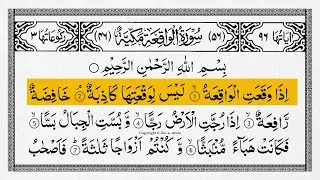 اٰيَاتُهَا ٩٦ (٥٦) سُوْرَةُ الْوَاقِعَةِ مَكِّيَّةٌ (٤٦) رُكُوْعَاتُهَا ٣
بِسْمِ اللّٰهِ الرَّحْمٰنِ الرَّحِيْمِ ۝
اِذَا وَقَعَتِ الْوَاقِعَةُ ۝١ لَيْسَ لِوَقْعَتِهَا كَاذِبَةٌ ۝٢ خَافِضَةٌ
رَّافِعَةٌ ۝٣ اِذَا رُجَّتِ الْاَرْضُ رَجًّا ۝٤ وَّ بُسَّتِ الْجِبَالُ بَسًّا ۝٥
فَكَانَتْ هَبَآءً مُّنْۢبَثًّا ۝٦ وَّ كُنْتُمْ اَزْوَاجًا ثَلٰثَةً ۝٧ فَاَصْحٰبُ